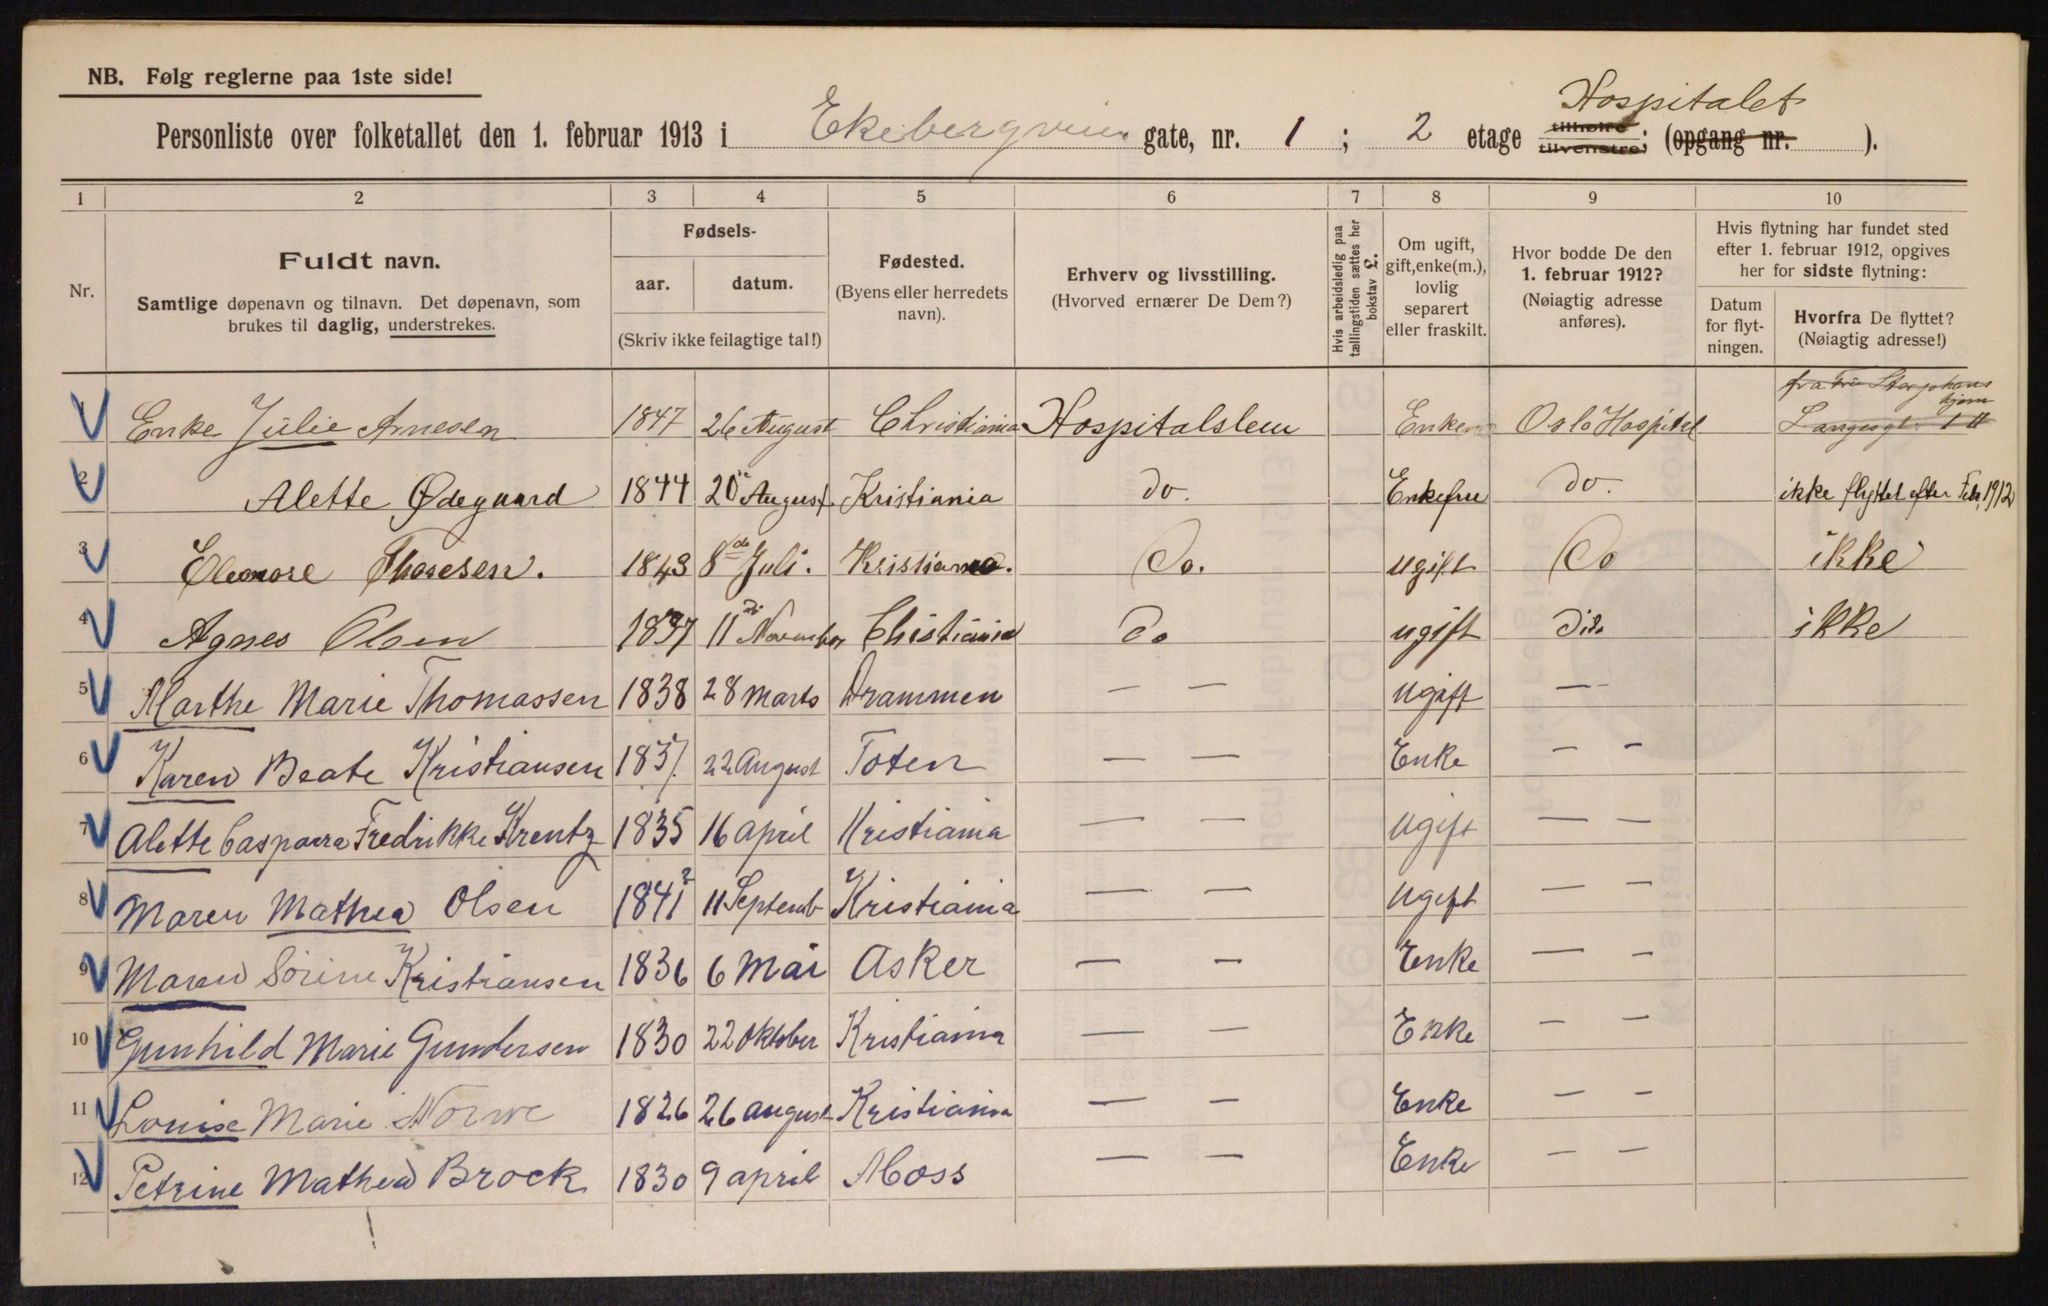 NB. Følg reglerne paa 1ste side!
Hospitalet
Personliste over folketallet den 1. februar 1913 i Ekebergveien gate, nr. 1 ; 2 etage tilhøire tilvenstre; (opgang nr. ).
1 2 3 4 5 6 7 8 9 10
Nr.
Fuldt navn.
Samtlige døpenavn og tilnavn. Det døpenavn, som
brukes til daglig, understrekes.
Fødsels-
aar. datum.
(Skriv ikke feilagtige tal!)
Fødested.
(Byens eller herredets
navn).
Erhverv og livsstilling.
(Hvorved ernærer De Dem?)
Hvis arbeidsledig paa
tællingstiden sættes her
bokstav L.
Om ugift,
gift, enke(m.),
lovlig
separert
eller fraskilt.
Hvor bodde De den
1. februar 1912?
(Nøiagtig adresse
anføres).
Hvis flytning har fundet sted
efter 1. februar 1912, opgives
her for sidste flytning:
Datum
for flyt-
ningen.
Hvorfra De flyttet?
(Nøiagtig adresse!)
1 Enke Julie Arnesen 1847 26 August Christiania Hospitalslem Enke Oslo Hospital
2 Alette Ødegaard 1844 20 August Kristiania do. Enkefru do. ikke flyttet efter Febr, 1912
3 Eleonore Thoresen. 1843 8de Juli. Kristiania. Do. ugift Do ikke
4 Agnes Olsen 1837 11 November Christiania do ugift dito ikke
5 Marthe Marie Thomassen 1838 28 Marts Drammen — — ugift —
6 Karen Beate Kristiansen 1837. 22 August Toten — — Enke — —
7 Alette Casparra Fredrikke Krentz 1835 16 april Kristiania — — Ugift — —
8 Maren Mathea Olsen 1841 11 Septemb Kristiania — — Ugift — —
9 Maren Sörine Kristiansen 1836 6 Mai Asker — — Enke — —
10 Gunhild Marie Gundersen 1830 22 Oktober Kristiania — — Enke — —
11 Louise Marie Norwe 1826 26 august Kristiania — — Enke — —
12 Petrine Mathea Brock 1830 9 april Moss — — Enke — —